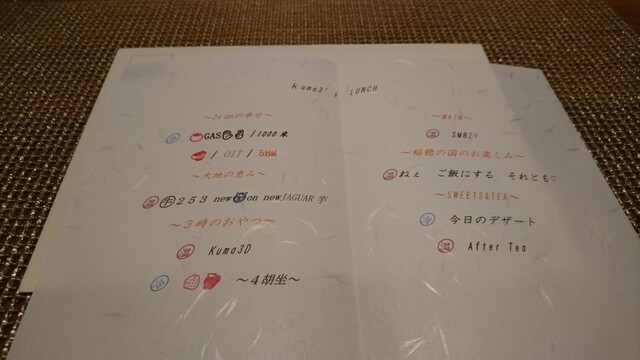 Kuma3's LUNCH
～24cmの幸せ～
冷 GAS /1000米
/ OIT / 5BM
～大地の恵み～
温 253 new on new JAGUAR 芋
～3時のおやつ～
温 Kuma3D
冷 ～4胡坐～
～MAIN～
温 SMB29
～稲穂の国のお楽しみ～
温 ねぇ ご飯にする それとも♡
～SWEETS&TEA～
冷 今日のデザート
温 After Tea